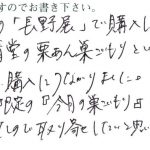 すのでお書き下さい。
の「長野展」で購入し
月堂の栗あん巣ごもりとい
購入につながりました。
限定の「今月の巣ごもり」
しので取り寄せしたいと思い